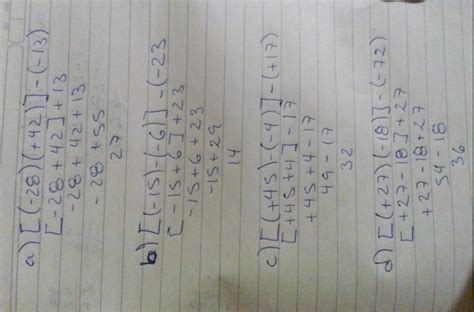 a) [(-28)(+42)]-(-13)
[-28+42]+13
-28+42+13
-28+55
27
b) [(-15)-(-6)]-(-23
[-15+6]+23
-15+6+23
-15+29
14
c) [(+45)-(-4)]-(+17)
[+45+4]-17
+45+4-17
49-17
32
d) [(+27)(-18)]-(-72)
[+27-18]+27
+27-18+27
54-18
36